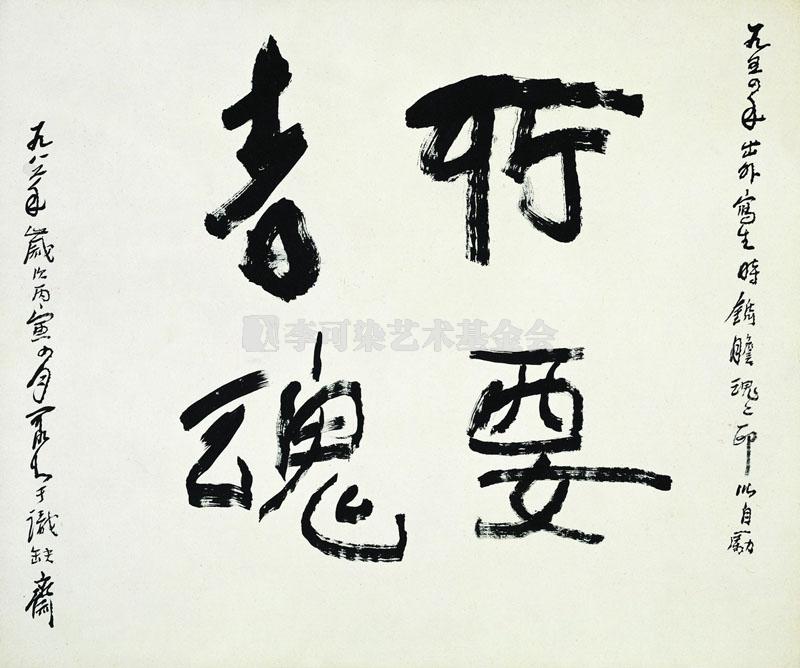 一九五四年出外寫生時鐫膽魂二印以自勵
所要
者魂
一九八六年歲次丙寅四月可染于識缺齋
李可染艺术基金会